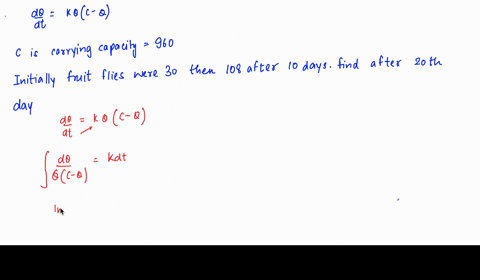 dθ/dt = kθ(C-θ)
C is carrying capacity = 960
Initially fruit flies were 30 then 108 after 10 days. find after 20th
day
dθ/dt = kθ(C-θ)
∫ dθ/θ(C-θ) = kdt